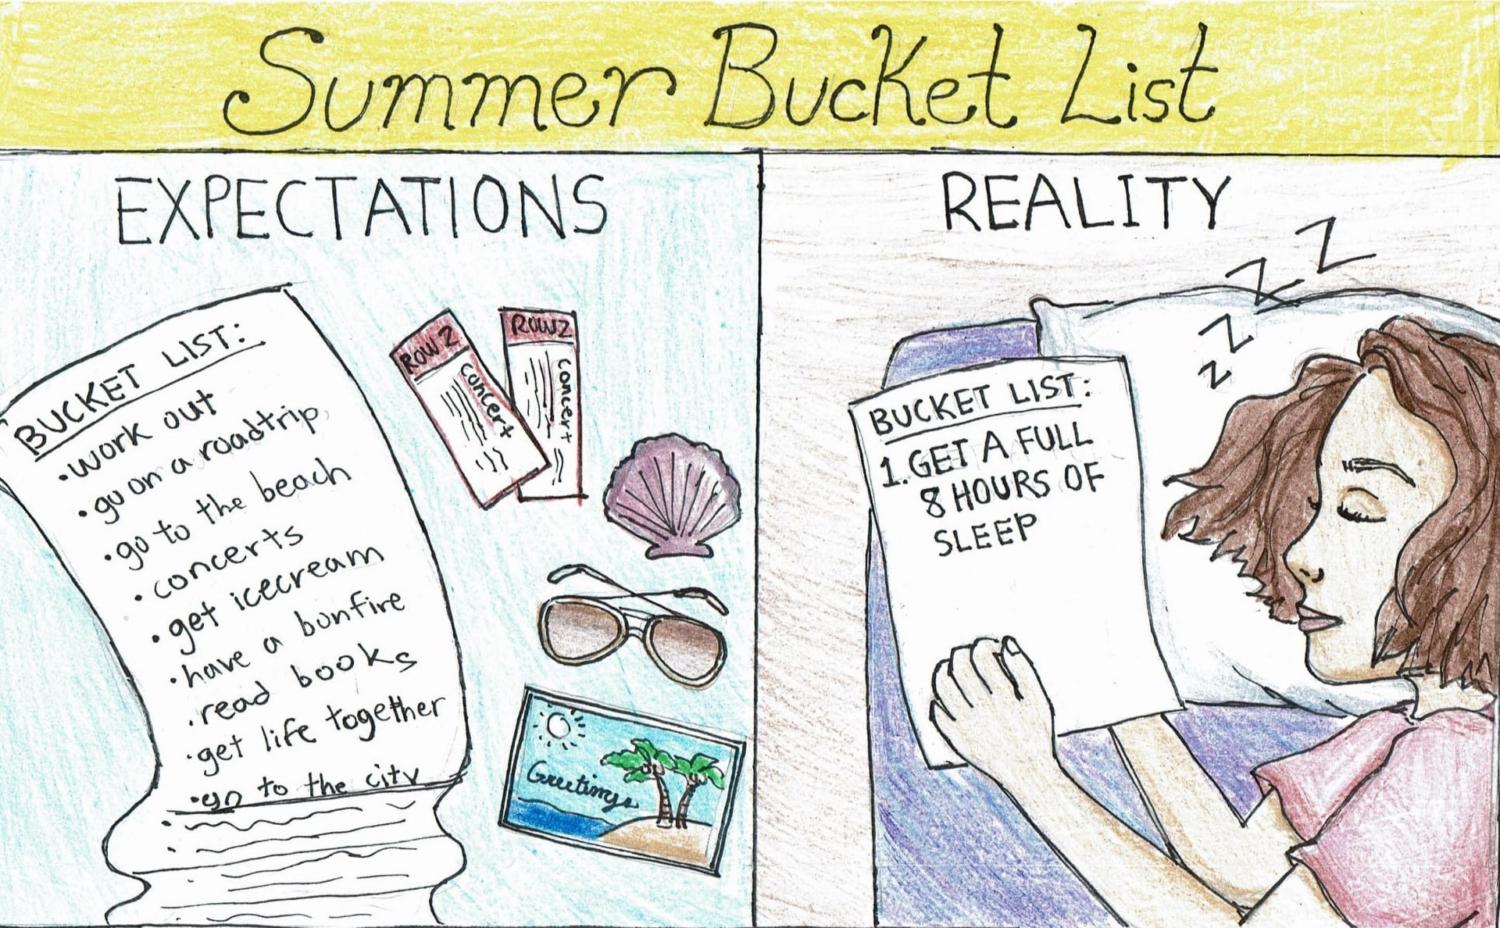 Summer Bucket List
EXPECTATIONS
BUCKET LIST:
•work out
•go on a roadtrip
•go to the beach
•concerts
•get icecream
•have a bonfire
•read books
•get life together
•go to the city
ROW 2
concert
ROW 2
concert
Greetings
REALITY
z z z z
BUCKET LIST:
1. GET A FULL
8 HOURS OF
SLEEP